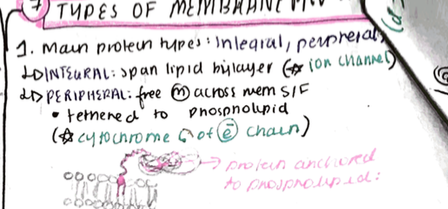 7 TYPES OF MEMBRANE
1. Main protein types: integral, peripheral
↳ INTEGRAL: span lipid bilayer (☆ ion channel)
↳ PERIPHERAL: free ⓜ across mem S/F
• tethered to phospholipid
(☆ cytochrome C of ē chain)
→ protein anchored
to phospholipid: